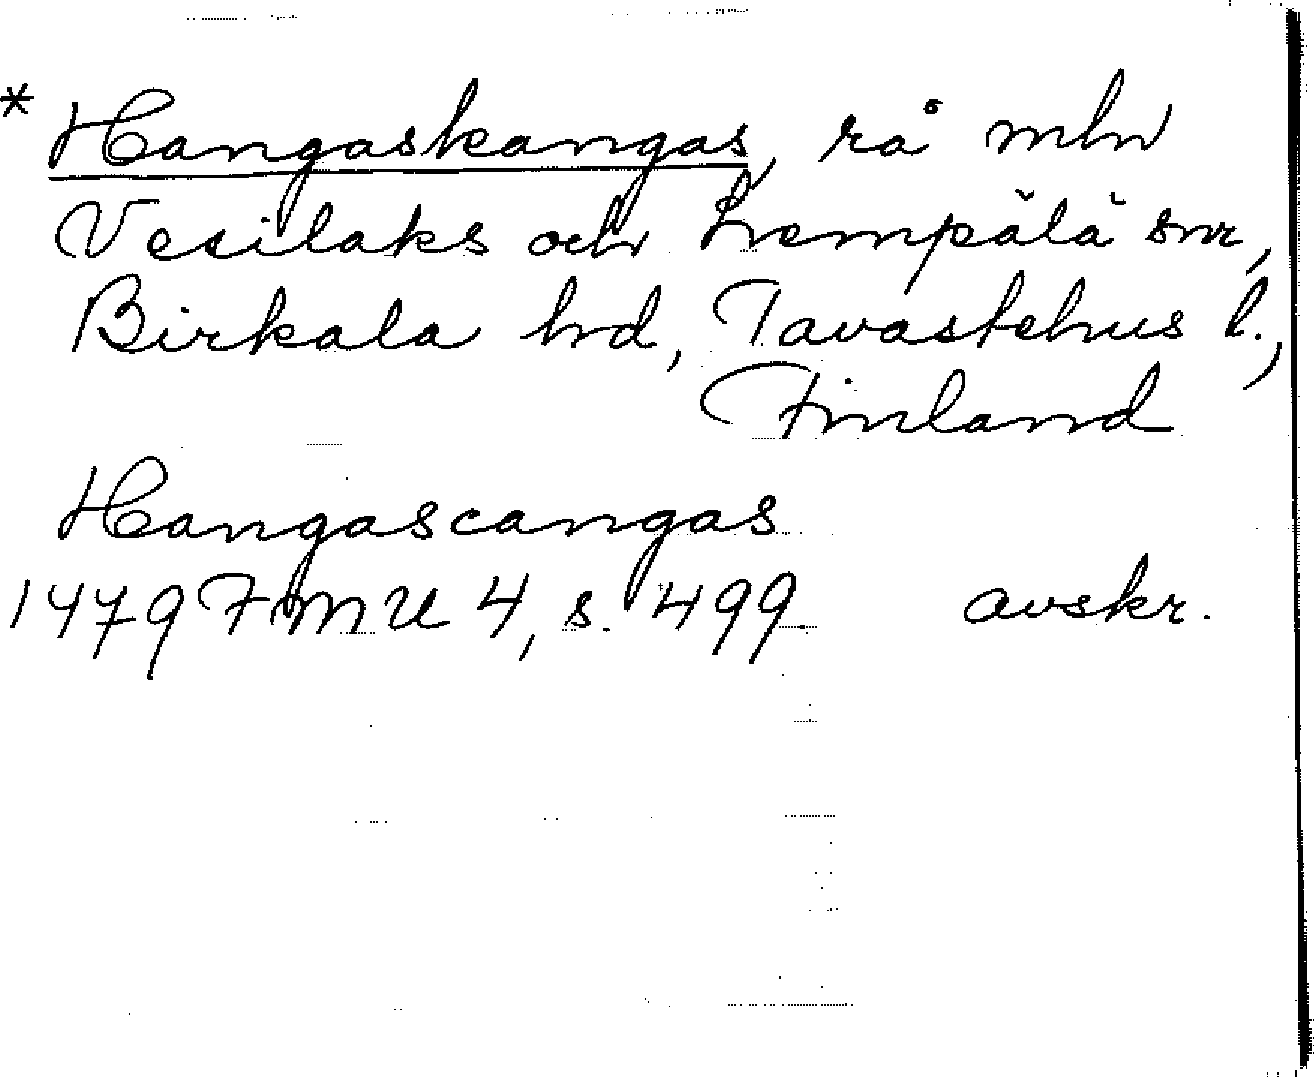 * Hangaskangas, rå mln
Vesilaks och Lempälä snr,
Birkala hd, Tavastehus l.,
Finland
Hangascangas
1479 FMU 4, s. 499 avskr.